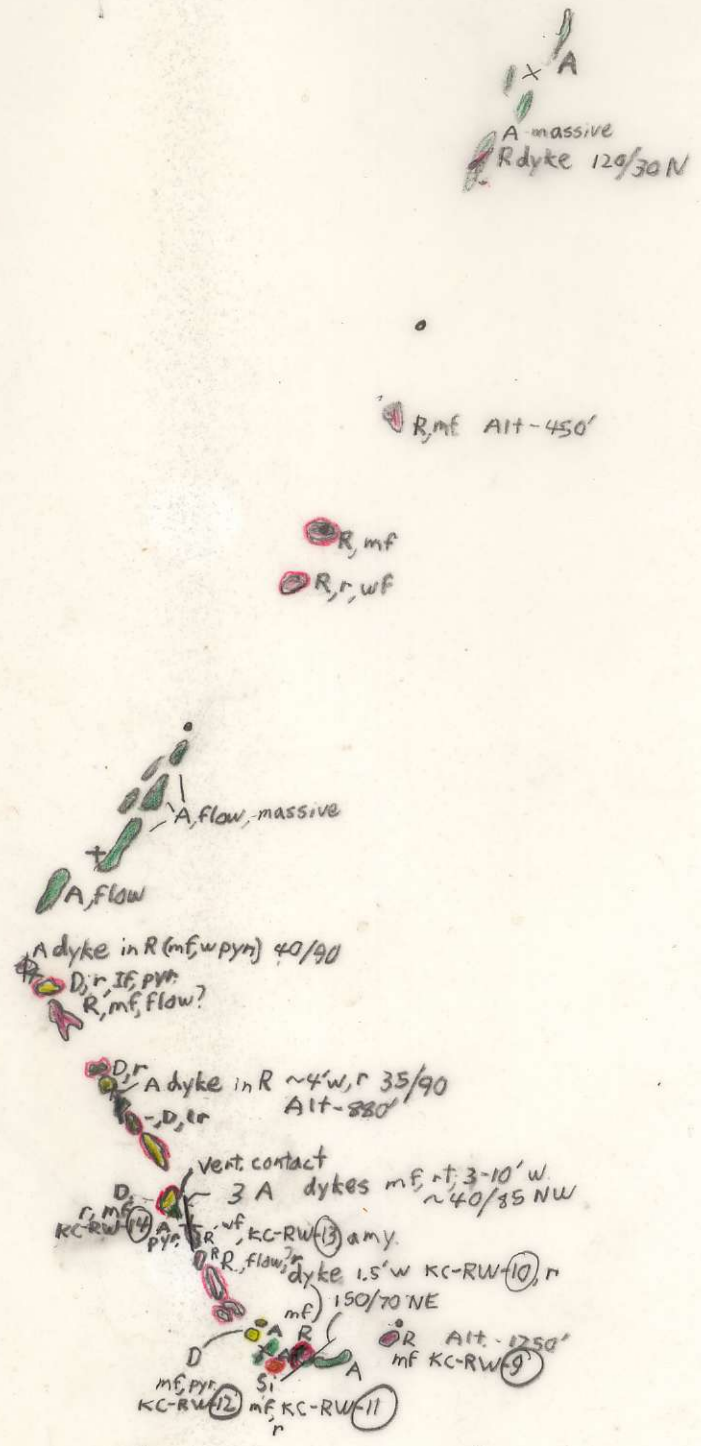 A
A massive
R dyke 120/30 N
R, mf Alt-450'
R, mf
R, r, wf
A, flow, massive
A, flow
A dyke in R (mf, w pyr) 40/90
D, r, lf, pyr.
R, mf, flow?
D, r
A dyke in R ~4'w, r 35/90
Alt-880'
D, lr
Vert. contact
D,
3 A dykes mf, rt, 3-10' w.
~40/85 NW
r, mf
KC-RW-14 A
pyr.
R wf, KC-RW-13 amy.
R R, flow, ? r
dyke 1.5'w KC-RW-10, r
mf) 150/70 NE
A R
R Alt. -1250'
mf KC-RW-9
D
A
A
mf, pyr,
Si
KC-RW-12 mf, KC-RW-11
r